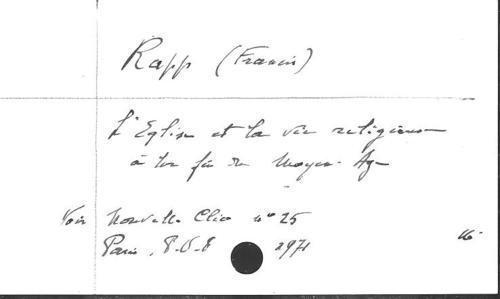 Rapp (Francis)
L'Eglise et la vie religieuse
à la fin du Moyen-Age
Voir Nouvelle Clio nº 25
Paris, P.U.F 1971